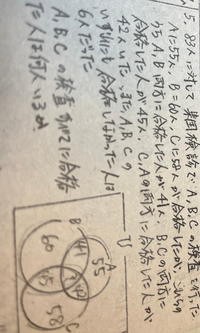 5. 83人に対して
A、B、Cの検査を行った
Aに55人、B=60人、Cに58人が合格したが、
A,B両方に合格した人が41人、B,Cの両方に
合格した人が45人、C,Aの両方に合格した人が
42人いた。またA,B,Cの
いずれにも合格しなかった人は
6人だった
A,B,Cの検査すべてに合格
した人は何人いるか
U
A
B
C
55
60
58
41
42
45